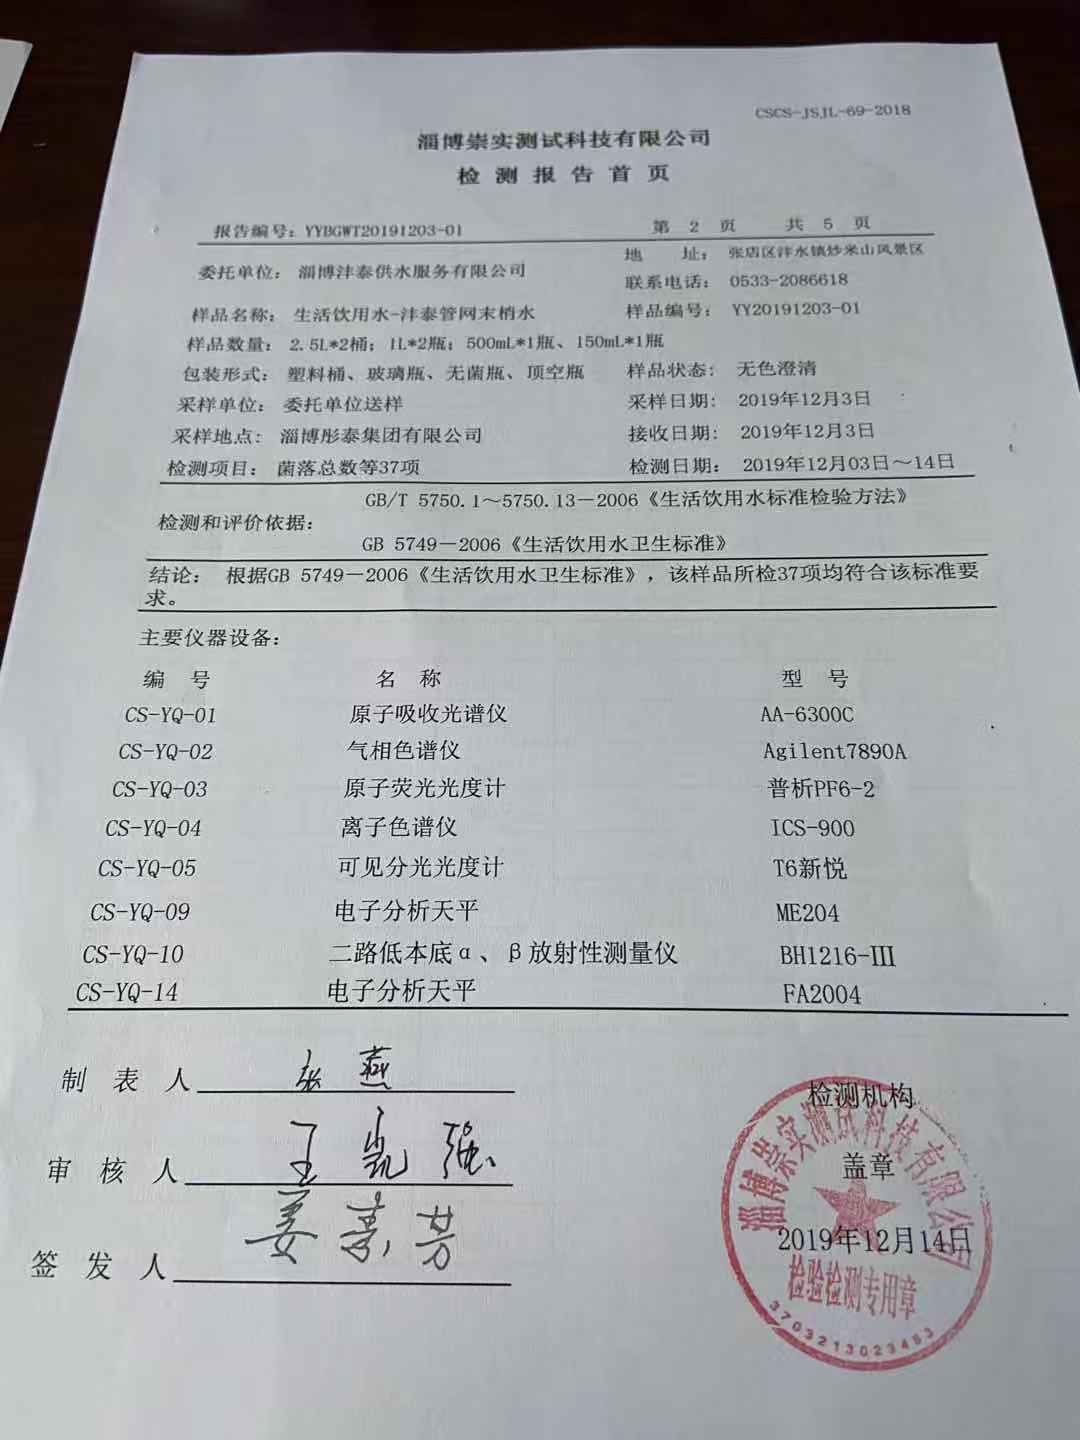 CSCS-JSJL-69-2018
淄博崇实测试科技有限公司
检测报告首页
报告编号：YYBGWT20191203-01 第 2 页 共 5 页
委托单位：淄博沣泰供水服务有限公司 地 址：张店区沣水镇炒米山风景区
联系电话：0533-2086618
样品名称：生活饮用水-沣泰管网末梢水 样品编号：YY20191203-01
样品数量：2.5L*2桶；1L*2瓶；500mL*1瓶、150mL*1瓶
包装形式：塑料桶、玻璃瓶、无菌瓶、顶空瓶 样品状态：无色澄清
采样单位：委托单位送样 采样日期：2019年12月3日
采样地点：淄博彤泰集团有限公司 接收日期：2019年12月3日
检测项目：菌落总数等37项 检测日期：2019年12月03日～14日
GB/T 5750.1～5750.13－2006《生活饮用水标准检验方法》
检测和评价依据：
GB 5749－2006《生活饮用水卫生标准》
结论：根据GB 5749－2006《生活饮用水卫生标准》，该样品所检37项均符合该标准要
求。
主要仪器设备：
编 号 名 称 型 号
CS-YQ-01 原子吸收光谱仪 AA-6300C
CS-YQ-02 气相色谱仪 Agilent7890A
CS-YQ-03 原子荧光光度计 普析PF6-2
CS-YQ-04 离子色谱仪 ICS-900
CS-YQ-05 可见分光光度计 T6新悦
CS-YQ-09 电子分析天平 ME204
CS-YQ-10 二路低本底α、β放射性测量仪 BH1216-Ⅲ
CS-YQ-14 电子分析天平 FA2004
制 表 人 张燕
审 核 人 王凯强
签 发 人 姜素芳
检测机构
盖章
2019年12月14日
淄博崇实测试科技有限公司
检验检测专用章
3703213023453